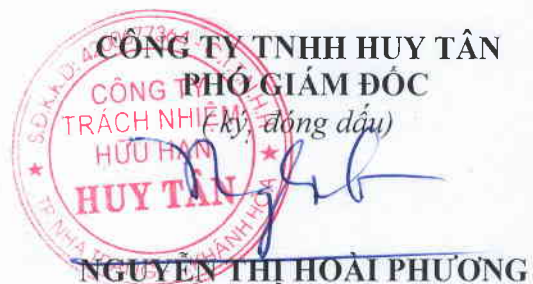 CÔNG TY TNHH HUY TÂN
PHÓ GIÁM ĐỐC
( ký, đóng dấu)
CÔNG TY
TRÁCH NHIỆM
HỮU HẠN
HUY TÂN
NGUYỄN THỊ HOÀI PHƯƠNG